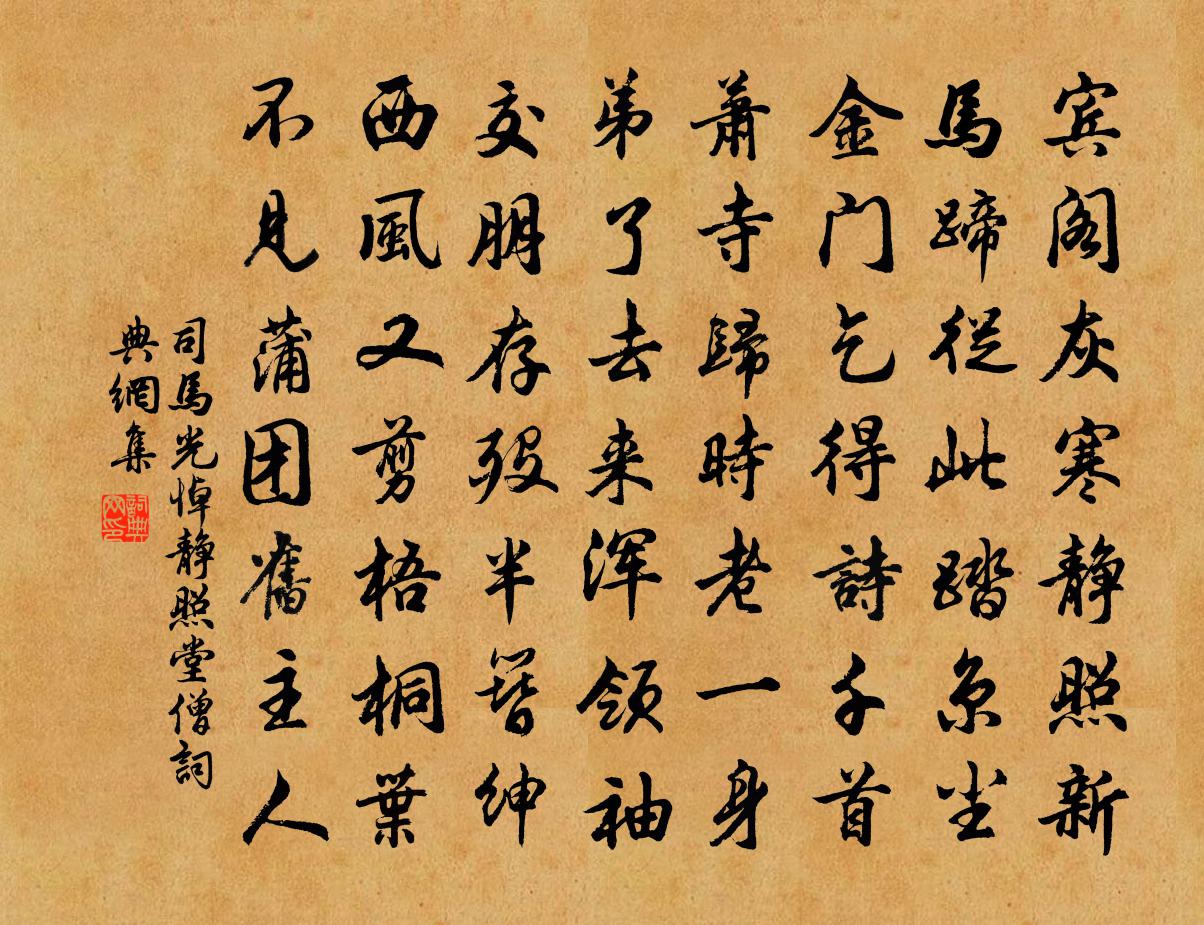 宾阁灰寒静照新
馬蹄從此踏京尘
金门乞得詩千首
蕭寺歸時老一身
弟了去来浑領袖
交朋存殁半簪紳
西風又剪梧桐葉
不見蒲团舊主人
司馬光悼静照堂僧詞
典網集
詞典網印